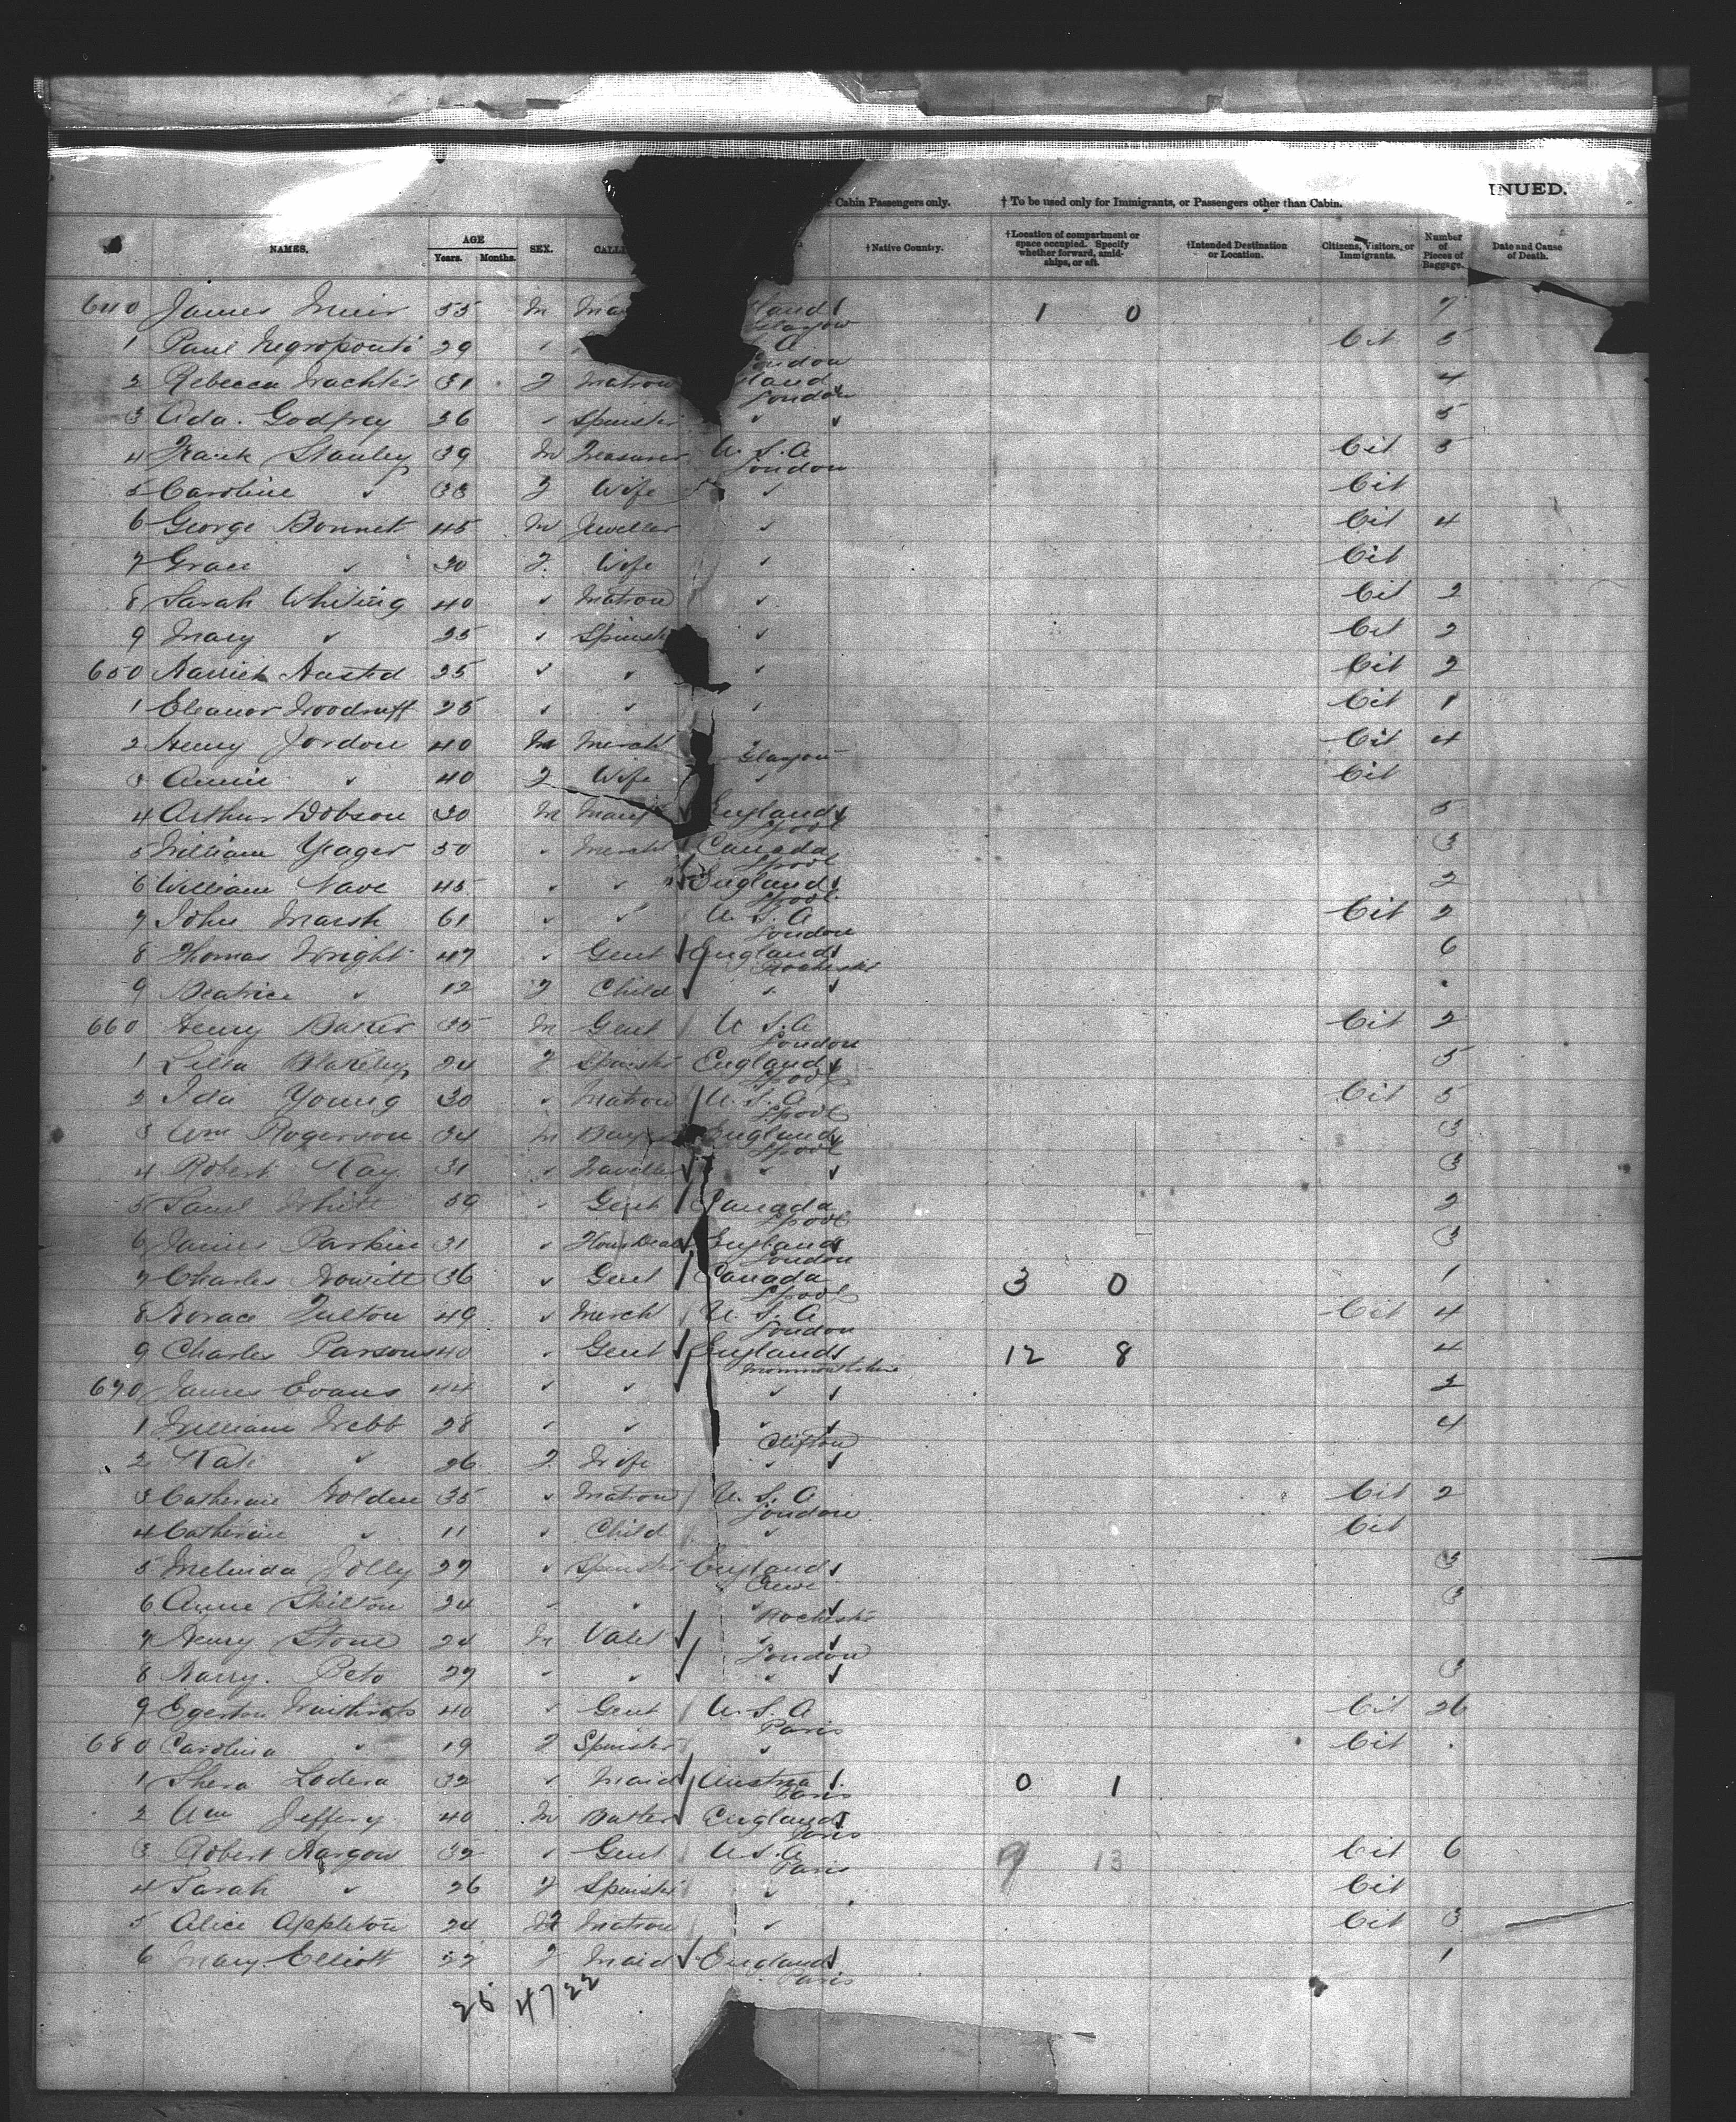 INUED.
Cabin Passengers only. † To be used only for Immigrants, or Passengers other than Cabin.
NAMES. AGE Years. Months. SEX. CALLI † Native Country. † Location of compartment or space occupied. Specify whether forward, amidships, or aft. † Intended Destination or Location. Citizens, Visitors, or Immigrants. Number of Pieces of Baggage. Date and Cause of Death.
640 James Muir 55 M land 1 0 7
Glasgow
1 Paul Negroponti 29 " A Cit 5
ondon
2 Rebecca 31 F Matron land 4
London
3 Ada Godfrey 36 " Spinster " 5
4 Frank Stanley 39 M Treasurer U.S.A Cit 5
London
5 Caroline " 33 F Wife " Cit
6 George Bonnet 45 M Jeweller " Cit 4
7 Grace " 30 F Wife " Cit
8 Sarah Whiting 40 " Matron " Cit 2
9 Mary " 25 " Spinst " Cit 2
650 Harriet Husted 25 " " " Cit 2
1 Eleanor Woodruff 25 " " " Cit 1
2 Henry Jordon 40 M Mercht " Cit 4
Glasgow
3 Annie " 40 F Wife " Cit
4 Arthur Dobson 30 M Manf England 5
Lpool
5 William Yeager 50 " Mercht Canada 3
Lpool
6 William Nave 45 " " England 2
Lpool
7 John Marsh 61 " " U.S.A Cit 2
London
8 Thomas Wright 47 " Gent England 6
Rochester
9 Beatrice " 12 F Child "
660 Henry Baker 35 M Gent U.S.A Cit 2
London
1 Blakeley 24 F Spinster England 5
Lpool
2 Ida Young 30 " Matron U.S.A Cit 5
Lpool
3 Wm Rogerson 34 M Buyer England 3
Lpool
4 Robert Kay 31 " Traveller " 3
5 Saml White 50 " Gent Canada 2
Lpool
6 James Parkin 31 " England 3
London
7 Charles Howitt 36 " Gent Canada 3 0 1
Lpool
8 Horace Fulton 49 " Merch U.S.A Cit 4
London
9 Charles Parsons 40 " Gent England 12 8 4
Monmouthshire
670 James Evans 44 " " " 2
1 William Webb 28 " " " 4
Clifton
2 Kate " 26 F Wife "
3 Catherine Holden 35 " Matron U.S.A Cit 2
London
4 Catherine " 11 " Child " Cit
5 Melinda Jolly 27 " Spinster England 3
Crewe
6 Anne Skilton 24 " " " 3
Rochester
7 Henry Stone 24 M Valet "
London
8 Harry Peto 27 " " " 3
9 Egerton 40 " Gent U.S.A Cit 26
Paris
680 Carolina " 19 F Spinster " Cit
1 Lodera 32 " Maid Austria 0 1
Paris
2 Wm Jeffery 40 M Butler England
Paris
3 Robert Hargous 32 " Gent U.S.A 9 13 Cit 6
Paris
4 Sarah " 26 F Spinster " Cit
5 Alice Appleton 24 Matron " Cit 3
6 Mary Elliott 32 F Maid England 1
Paris
25 47 22